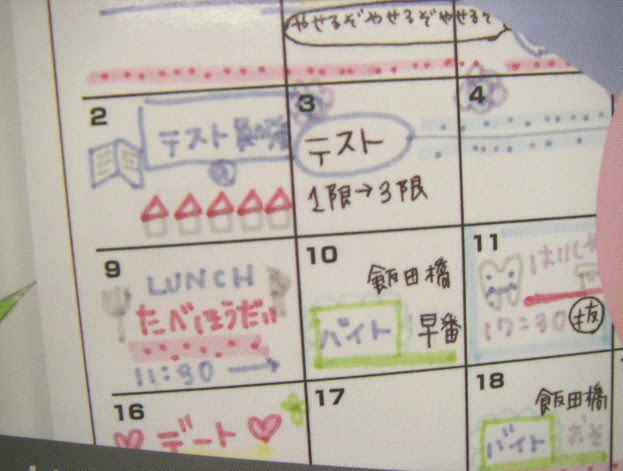 やせるぞやせるぞやせるぞ
2
テスト勉強
3
テスト
1限→3限
4
9
LUNCH
たべほうだい
11:30→
10
飯田橋
バイト
早番
11
はいしゃ
17:30
抜
16
デート
17
18
飯田橋
バイト
おそ